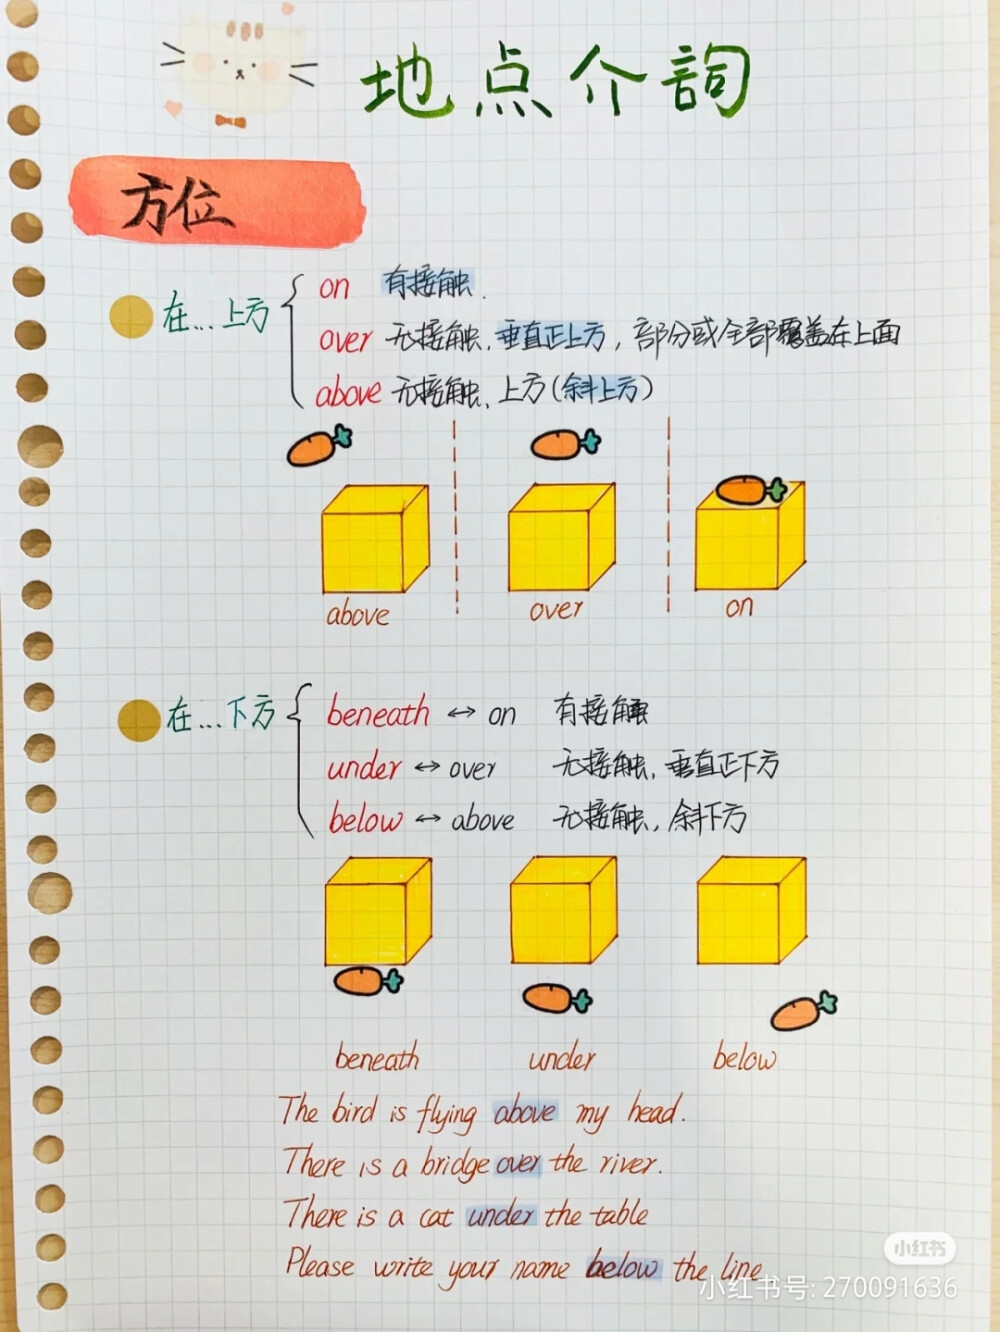 地点介詞
方位
在...上方
on 有接触.
over 无接触,垂直正上方,部分或全部覆盖在上面
above 无接触、上方(斜上方)
above over on
在...下方
beneath ↔ on 有接触
under ↔ over 无接触,垂直正下方
below ↔ above 无接触,斜下方
beneath under below
The bird is flying above my head.
There is a bridge over the river.
There is a cat under the table
Please write your name below the line.
小红书
小红书号: 270091636